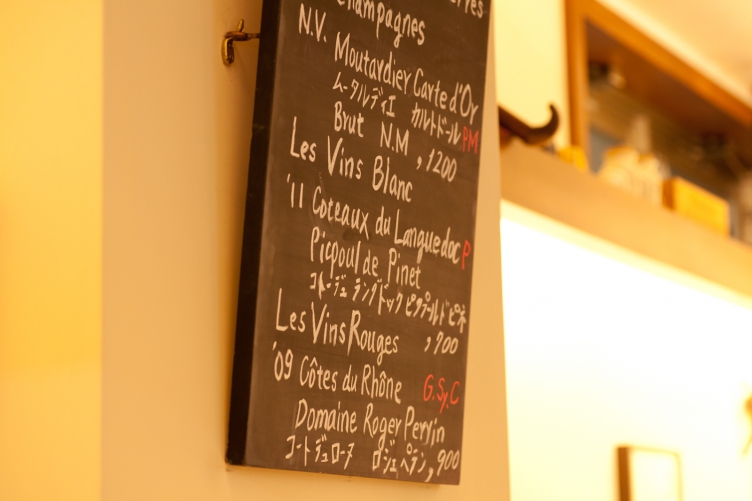 Champagnes
N.V. Moutardier Carte d'Or
ムータルディエ カルトドール PM
Brut N.M ,1200
Les Vins Blanc
'11 Coteaux du Languedoc P
Picpoul de Pinet
コトーデュ ラングドック ピクプールドピネ
,700
Les Vins Rouges
'09 Côtes du Rhône G.Sy.C
Domaine Roger Perrin
コートデュローヌ ロジェペラン ,900